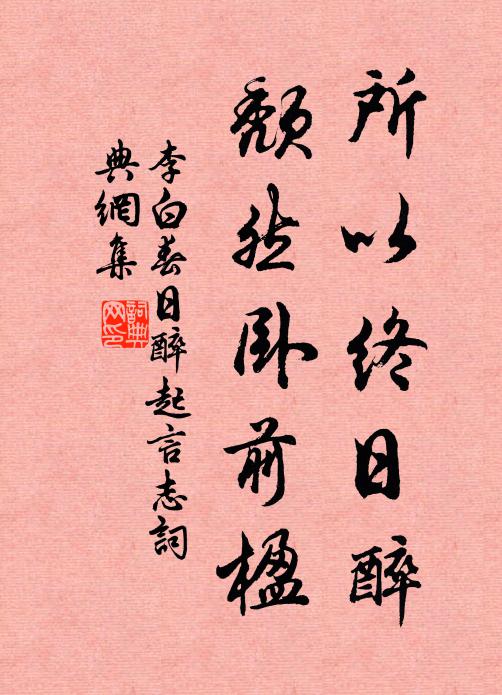 所以終日醉
頹然卧前楹
李白春日醉起言志詞
典網集
詞典
网印